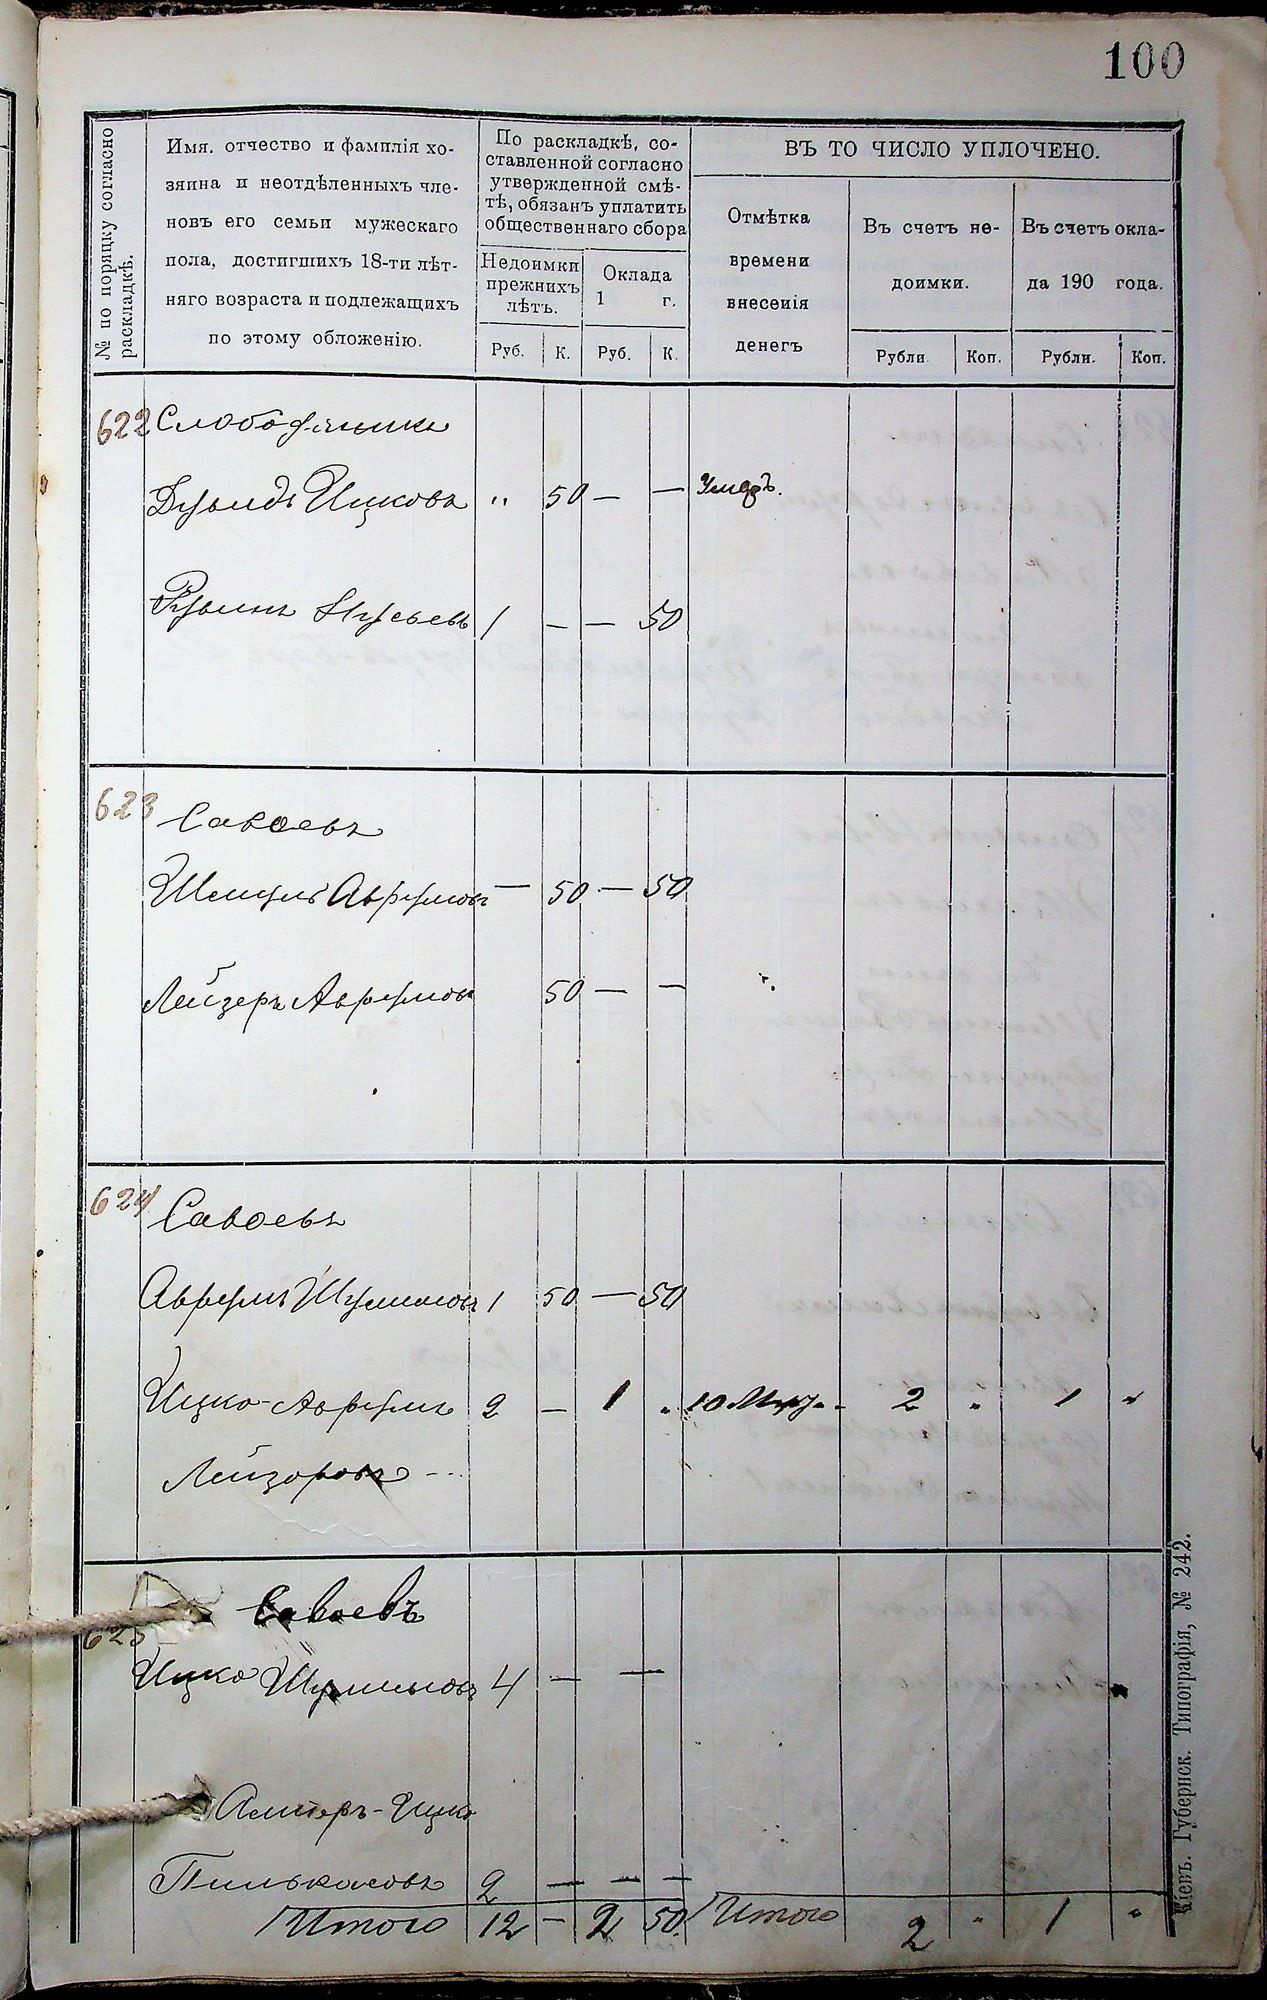 100
№ по порядку согласно раскладкѣ.
Имя, отчество и фамилія хо-
зяина и неотдѣленныхъ чле-
новъ его семьи мужескаго
пола, достигшихъ 18-ти лѣт-
няго возраста и подлежащихъ
по этому обложенію.
По раскладкѣ, со-
ставленной согласно
утвержденной смѣ-
тѣ, обязанъ уплатить
общественнаго сбора
Недоимки
прежнихъ
лѣтъ.
Оклада
1 г.
Руб. К. Руб. К.
ВЪ ТО ЧИСЛО УПЛОЧЕНО.
Отмѣтка
времени
внесенія
денегъ
Въ счетъ не-
доимки.
Рубли Коп.
Въ счетъ окла-
да 190 года.
Рубли. Коп.
622 Слободяникъ
Дувидъ Ицковъ " 50 — — Умеръ.
Рувинъ 1 — — 50
623 Савоевъ
Шмуль Аврумовъ — 50 — 50
Лейзеръ Аврумовъ 50 — —
624 Савоевъ
Аврумъ Шулимовъ 1 50 — 50
Ицко-Аврумъ 2 — 1 " 10 2 " 1 "
Лейзоровъ
625 Савоевъ
Ицко Шулимовъ 4 — —
Ицко
Пинькасовъ 2 — — —
Итого 12 — 2 50. Итого 2 " 1 "
Кіевъ. Губернск. Типографія, № 242.